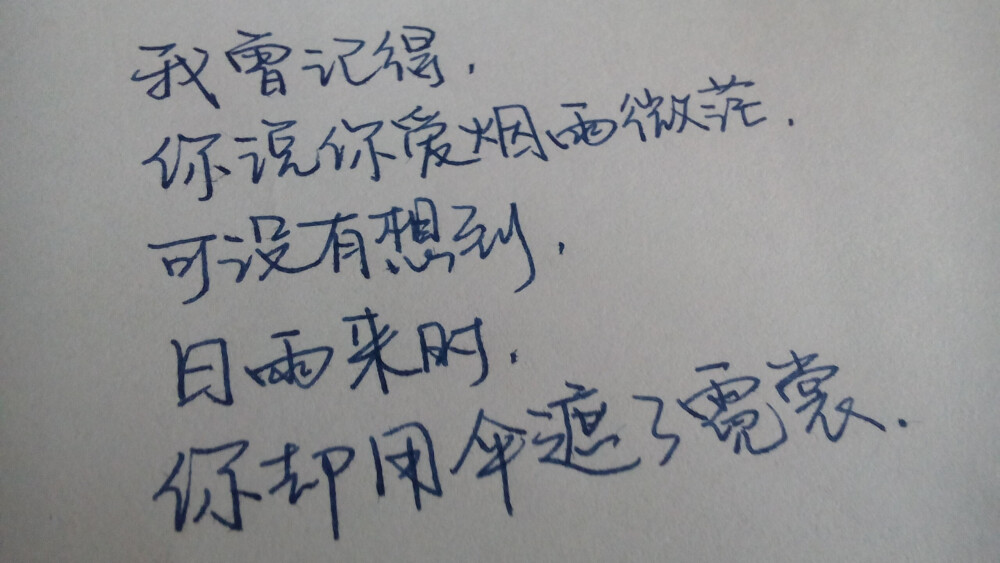 我曾记得，
你说你爱烟雨微茫，
可没有想到，
日雨来时，
你却用伞遮了霓裳。